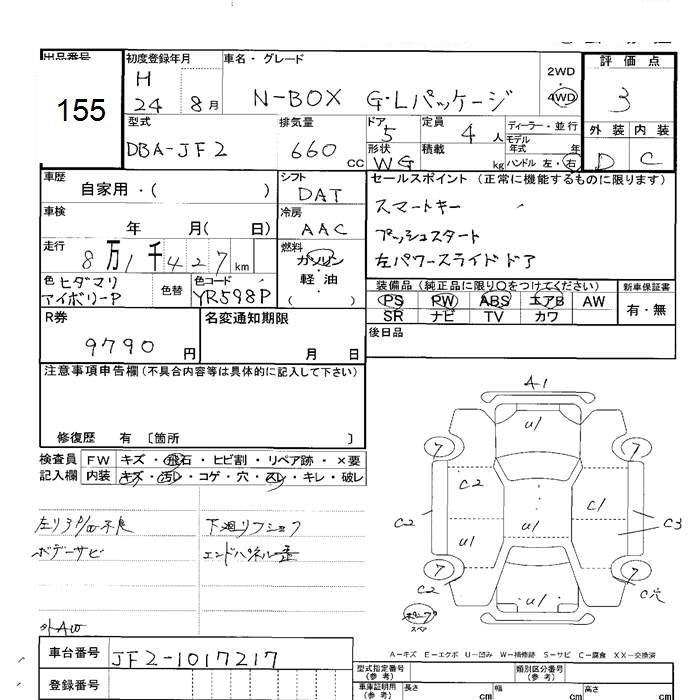 出品番号
155
初度登録年月
H
24 8月
車名・グレード
N-BOX G・Lパッケージ
2WD
4WD
評価点
3
外装 内装
D C
型式
DBA-JF2
排気量
660 cc
ドア
5
形状
WG
定員
4人
積載
kg
ディーラー・並行
モデル
年式 年
ハンドル 左・右
車歴
自家用・( )
シフト
DAT
車検
年 月( 日)
冷房
AAC
走行
8万1千427km
燃料
ガソリン
軽油
( ・ )
色 ヒダマリ
アイボリーP
色替
色コード
YR598P
セールスポイント(正常に機能するものに限ります)
スマートキー
プッシュスタート
左パワースライドドア
装備品(純正品に限り○をつけてください)
PS PW ABS エアB AW
SR ナビ TV カワ
新車保証書
有・無
R券
9790円
名変通知期限
月 日
後日品
注意事項申告欄(不具合内容等は具体的に記入して下さい)
修復歴 有 〔箇所 〕
検査員
記入欄
FW キズ・飛石・ヒビ割・リペア跡・×要
内装 キズ・汚レ・コゲ・穴・スレ・キレ・破レ
ボデーサビ
外AW
A-1
U1
7 7
C2 C1
C2 C3
U1 U1
7 7
C2 U1 C穴
スペア
A-キズ E-エクボ U-凹み W-補修跡 S-サビ C-腐食 XX-交換済
車台番号
JF2-1017217
登録番号
型式指定番号
(参考)
類別区分番号
(参考)
車庫証明用
(参考)
長さ cm
幅 cm
高さ cm